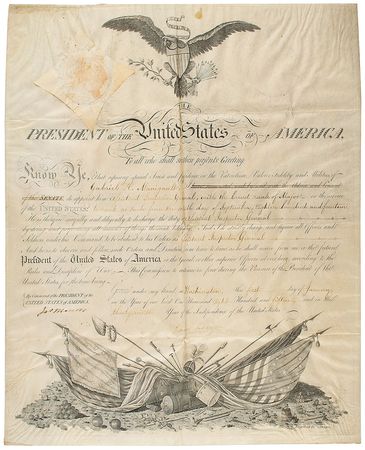 THE
PRESIDENT OF THE United States OF AMERICA,
To all who shall see these presents Greeting
Know Ye, That reposing special Trust and Confidence in the Patriotism, Valor, Fidelity and Abilities of
Gabriel H. Manigault I
of the SENATE do appoint him Assistant Inspector General, with the brevet rank of Major in the service
of the UNITED STATES to day of September, Eighteen hundred and fourteen
He is therefore carefully and diligently to discharge the duty of Assistant Inspector General
by doing and performing all manner of things thereunto belonging. And I do strictly charge, and require all Officers and
Soldiers under his Command, to be obedient to his Orders as Assistant Inspector General.
And he is to observe and follow such Orders and Directions from time to time as he shall receive from me or the future
President of the United States of America or the General or other superior Officers set over him, according to the
Rules and Discipline of War. This Commission to continue in force during the Pleasure of the President of the
United States for the time being.
Given under my hand at Washington this first day of January
in the Year of our Lord One Thousand Eight Hundred and fifteen and in the
thirty ninth Year of the Independence of the United States.
By Command of the PRESIDENT of the
UNITED STATES OF AMERICA.
Jas Monroe